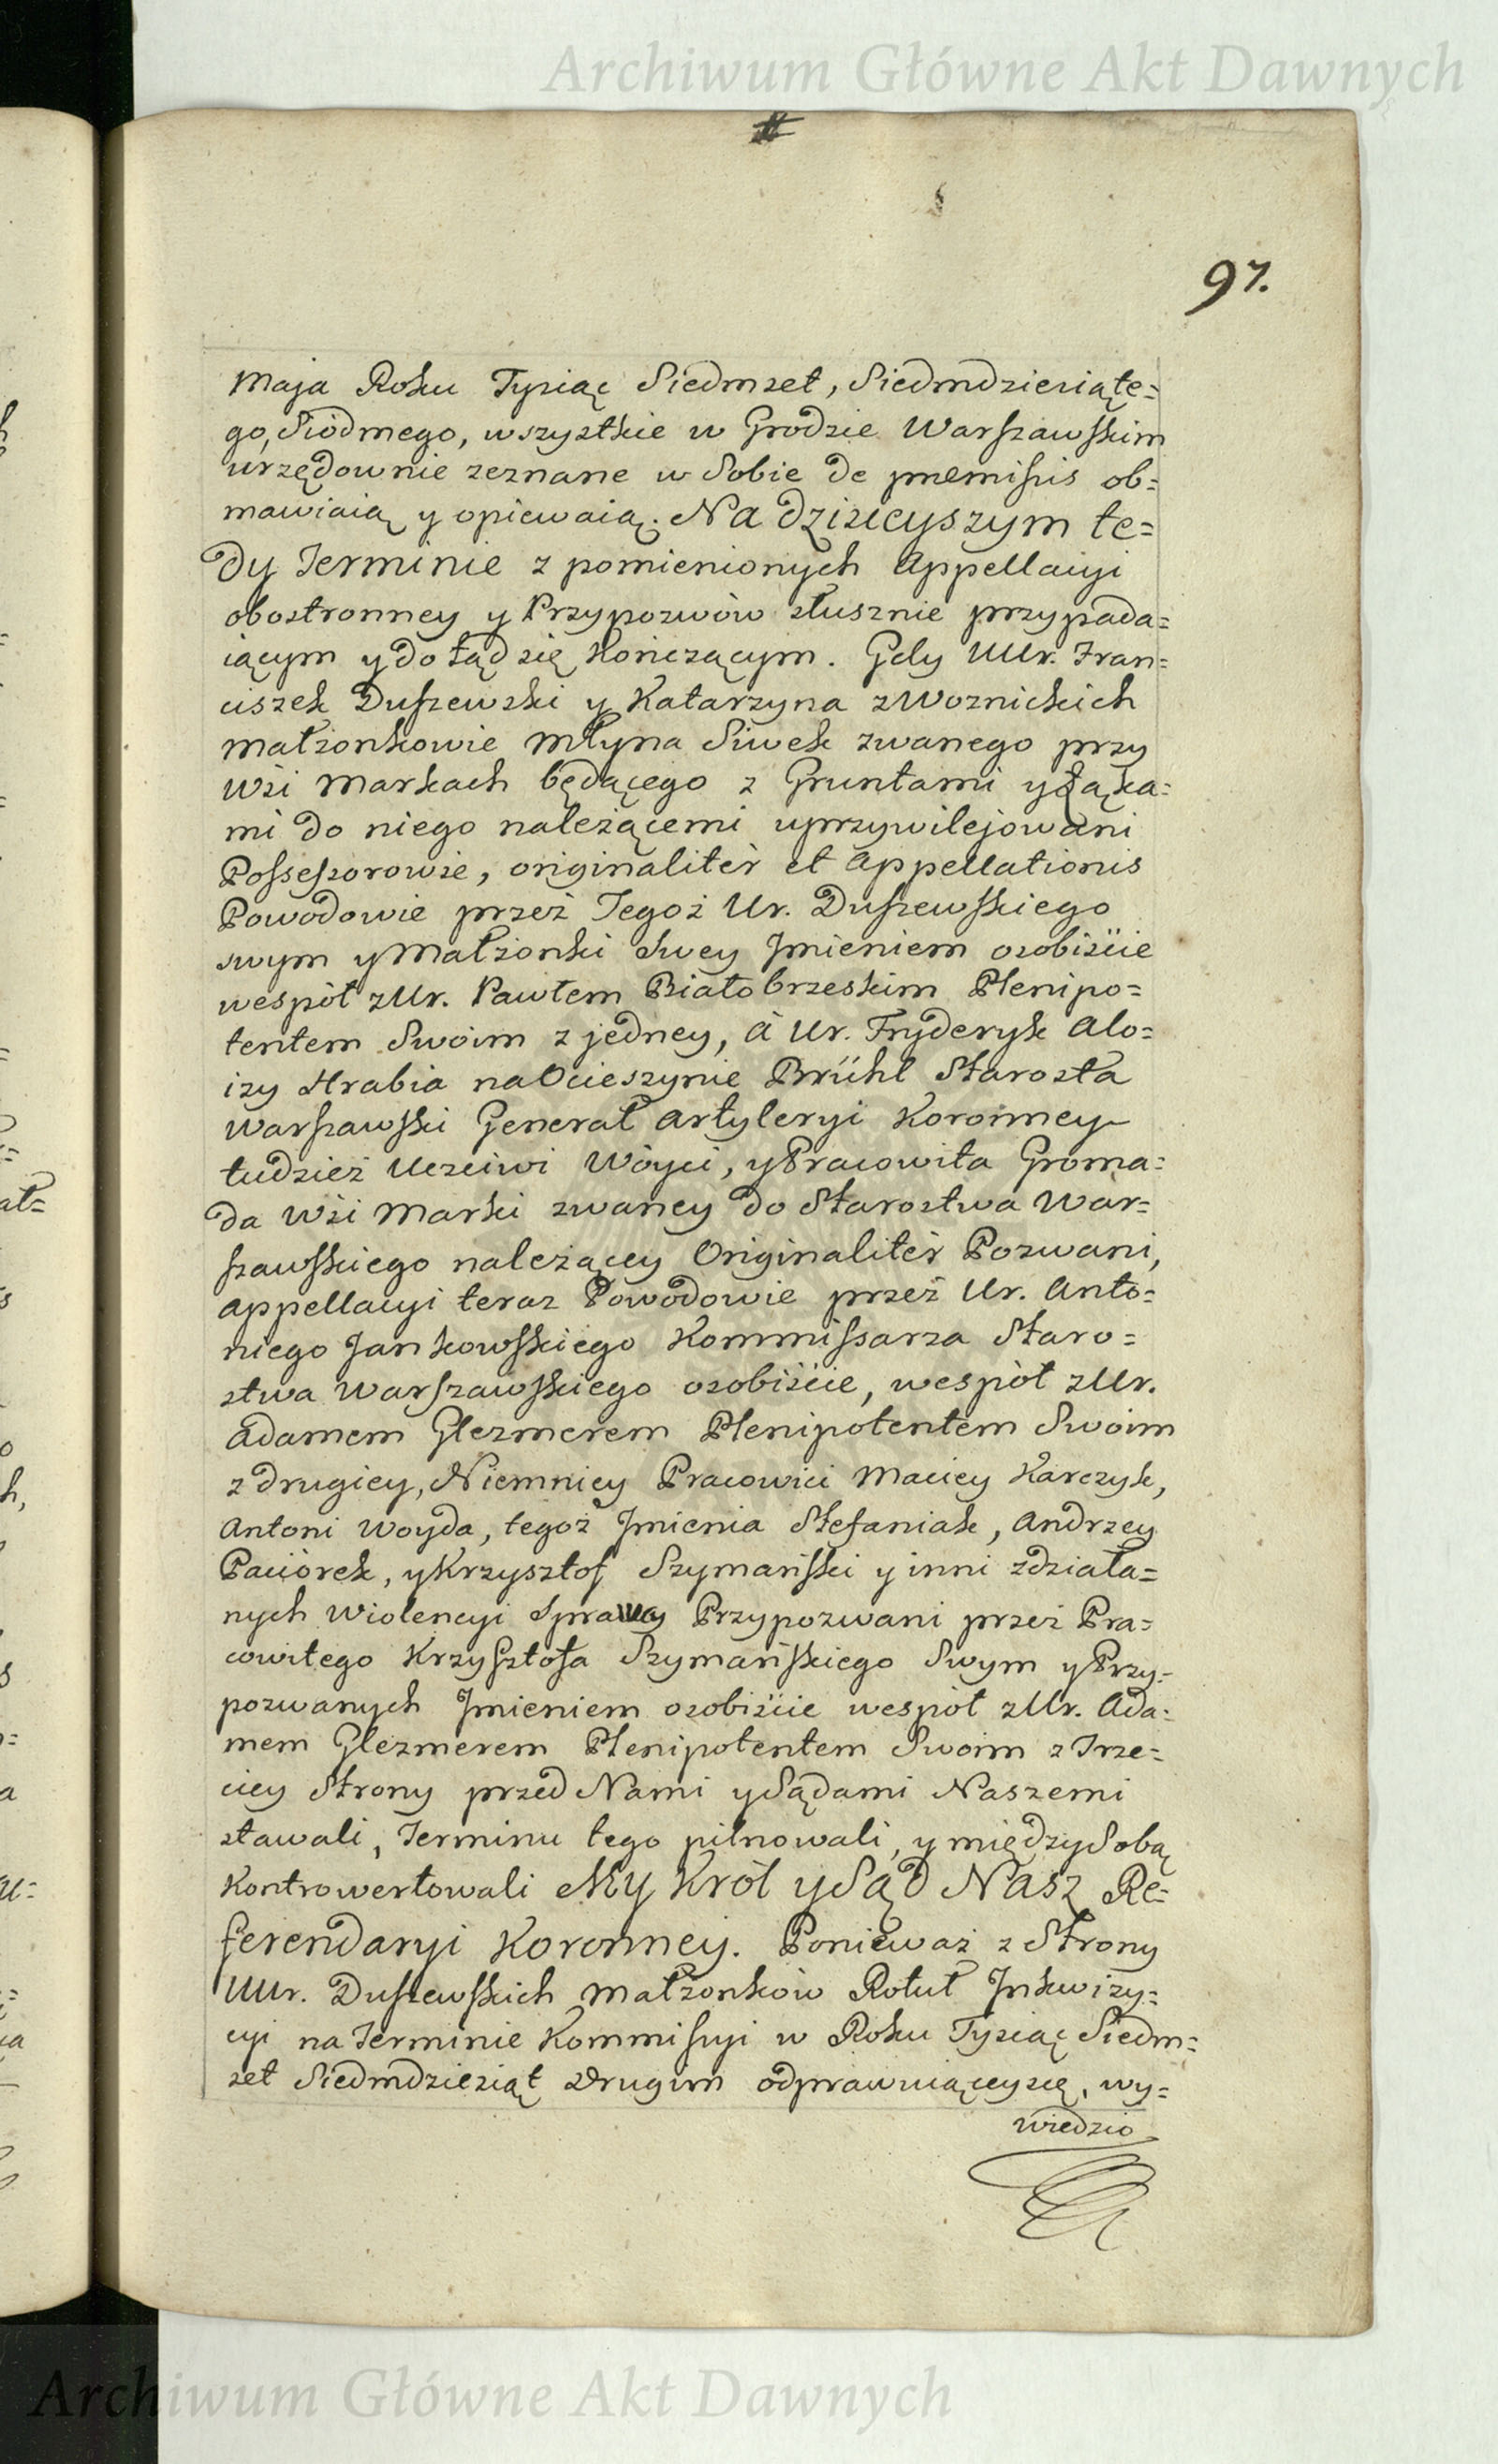 Archiwum Główne Akt Dawnych
97.
Maja Roku Tysiąc Siedmset, Siedmdziesiąte=
go, Siódmego, wszystkie w Grodzie Warszawskim
urzędownie zeznane w Sobie de premissis ob=
mawiaią y opiewaią. Na dzisieyszym te=
dy Terminie z pomienionych Appellacyi
obostronney y Przypozwów słusznie przypada=
iącym y dotąd się kończącym. Gdy UUr. Fran=
ciszek Duszewski y Katarzyna z Woznickich
Małżonkowie Młyna Siwek zwanego przy
Wsi Markach będącego z Gruntami y Łąka=
mi do niego należącemi uprzywilejowani
Possessorowie, originalitèr et Appellationis
Powodowie przez Tegoż Ur. Duszewskiego
swym y Małżonki Swey Jmieniem osobiście
wespół z Ur. Pawłem Białobrzeskim Plenipo=
tentem Swoim z jedney, à Ur. Fryderyk Alo=
izy Hrabia na Ocieszynie Brühl Starosta
Warszawski Generał Artyleryi Koronney
tudzież Uczciwi Wóyci, y Pracowita Groma=
da Wsi Marki zwaney do Starostwa War=
szawskiego należącey Originalitèr Pozwani,
Appellacyi teraz Powodowie przez Ur. Anto=
niego Jankowskiego Kommissarza Staro=
stwa Warszawskiego osobiście, wespół z Ur.
Adamem Glezmerem Plenipotentem Swoim
z drugiey, Niemniey Pracowici Maciey Karczyk,
Antoni Woyda, tegoż Jmienia Stefaniak, Andrzey
Paciorek, y Krzysztof Szymański y inni zdziała=
nych Wiolencyi Sprawcy Przypozwani przez Pra=
cowitego Krzysztofa Szymańskiego Swym y Przy=
pozwanych Jmieniem osobiście wespół z Ur. Ada=
mem Glezmerem Plenipotentem Swoim z Trze=
ciey Strony przed Nami y Sądami Naszemi
stawali, Terminu tego pilnowali, y między Sobą
Kontrowertowali My Król y Sąd Nasz Re=
ferendaryi Koronney. Ponieważ z Strony
UUr. Duszewskich Małżonków Rotuł Jnkwizy=
cyi na Terminie Kommissyi w Roku Tysiąc Siedm=
set Siedmdziesiąt Drugim odprawuiącey się, wy=
wiedzio
Archiwum Główne Akt Dawnych